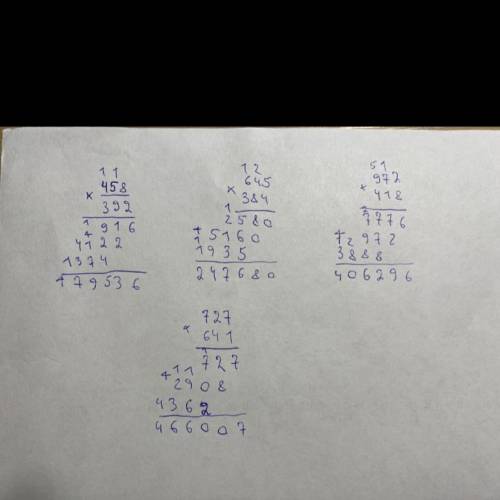 1 1
× 458
392
1
916
4122
1374
179536
1 2
× 645
384
1
2580
+ 5160
1 1935
247680
5 1
× 972
418
7776
972
3888
406296
× 727
641
727
+ 1 1
2908
4362
466007